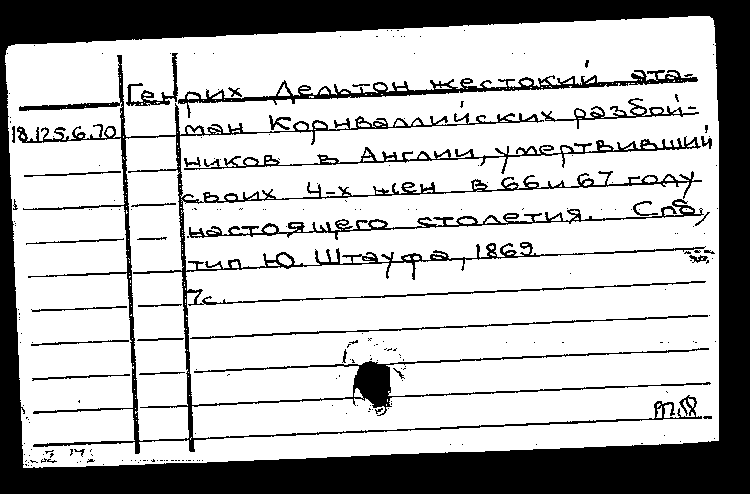 Генрих Дельтон жестокий ата-
18.125.6.70 ман Корнваллийских разбой-
ников в Англии, умертвивший
своих 4-х жен в 66 и 67 году
настоящего столетия. Спб,
тип Ю. Штауфа, 1869
7с.